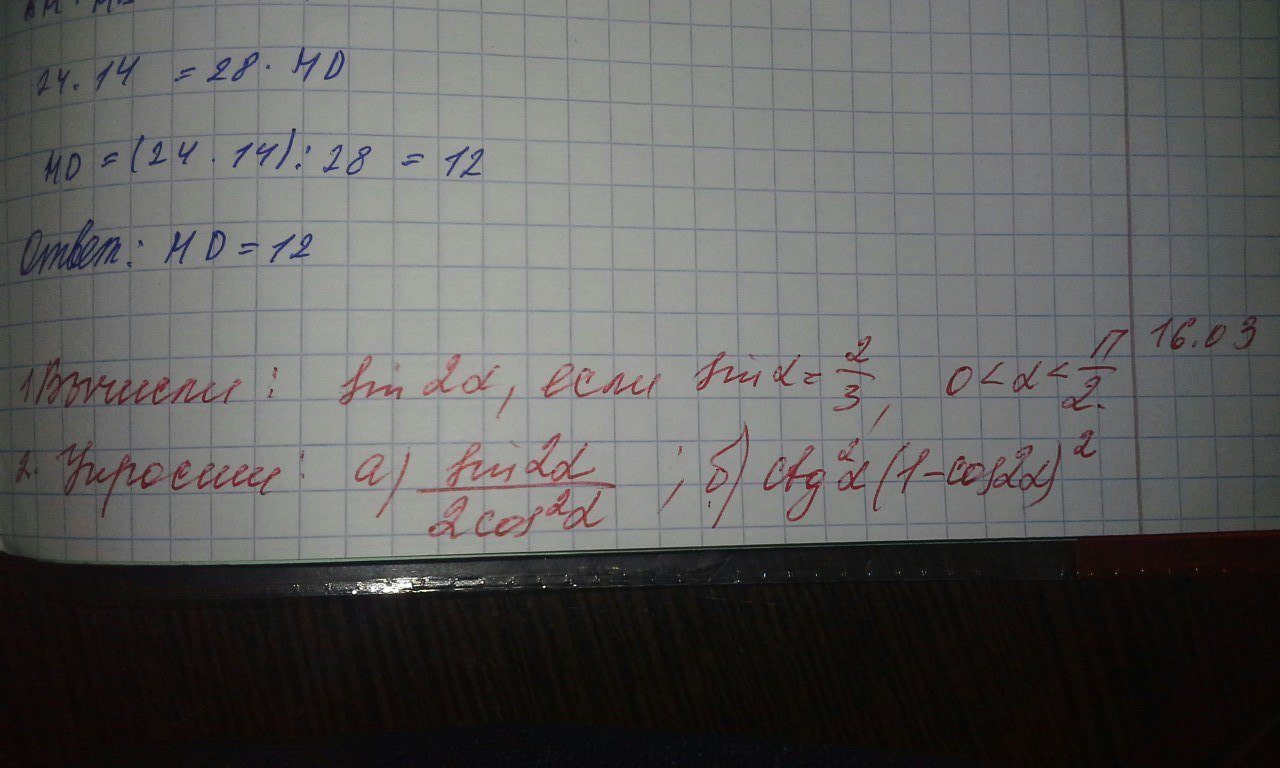 24 · 14 = 28 · MD
MD = (24 · 14) : 28 = 12
Ответ: MD = 12
16.03
1. Вычисли: sin 2α, если sin α = 2/3, 0 < α < π/2.
2. Упрости: а) sin 2α / 2cos²α ; б) ctg²α (1 - cos2α)²